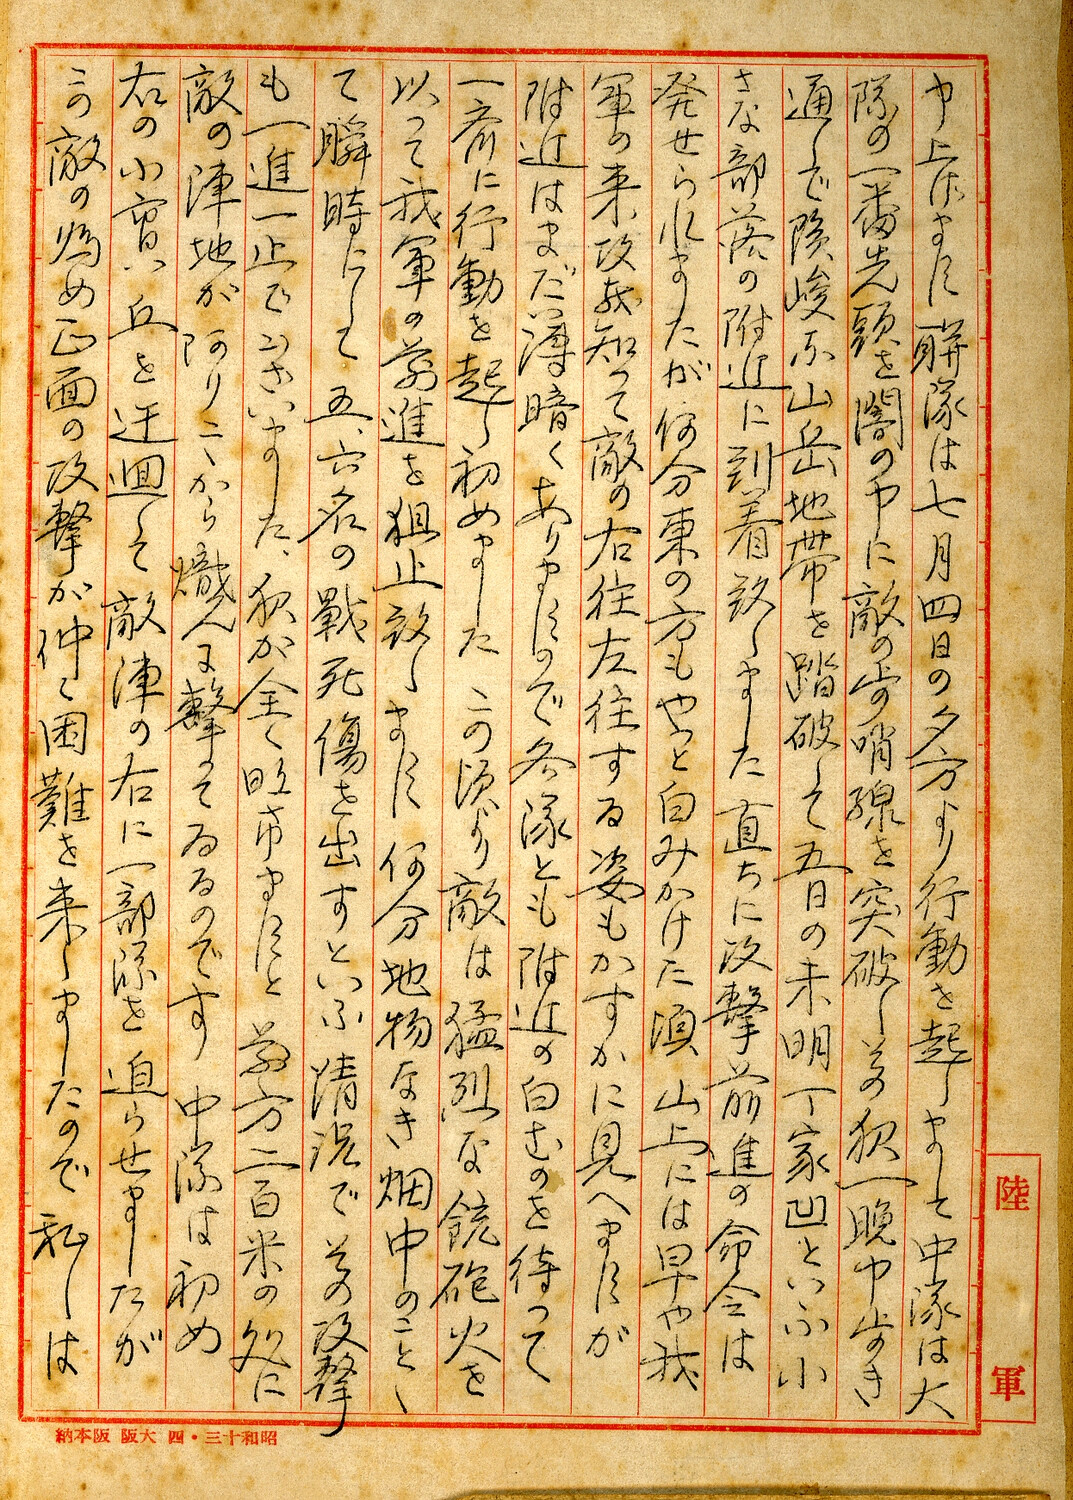 申上げます 聯隊は七月四日の夕方より行動を起しまして中隊は大
隊の一番先頭を闇の中に敵の歩哨線を突破し其の夜一晩中歩き
通しで険峻な山岳地帯を踏破して五日の未明丁家凹といふ小
さな部落の附近に到着致しました 直ちに攻撃前進の命令は
発せられましたが何分東の方もやっと白みかけた頃 山上には早や我
軍の来攻を知って敵の右往左往する姿もかすかに見へますが
附近はまだ薄暗くありますので各隊とも附近の白むのを待って
一斉に行動を起し初めました この頃より敵は猛烈な銃砲火を
以って我軍の前進を狙止致します 何分地物なき畑中のことゝ
て瞬時にして五、六名の戦死傷を出すといふ情況で其の攻撃
も一進一止でございました、夜が全く明けますと 前方二百米の処に
敵の陣地が阿りこゝから熾んに撃ってゐるのです 中隊は初め
右の小高い丘を迂廻して敵陣の右に一部隊を迫らせましたが
この敵の為め正面の攻撃が仲々困難を来しましたので 私しは
陸軍
昭和十三・四 大阪 阪本納